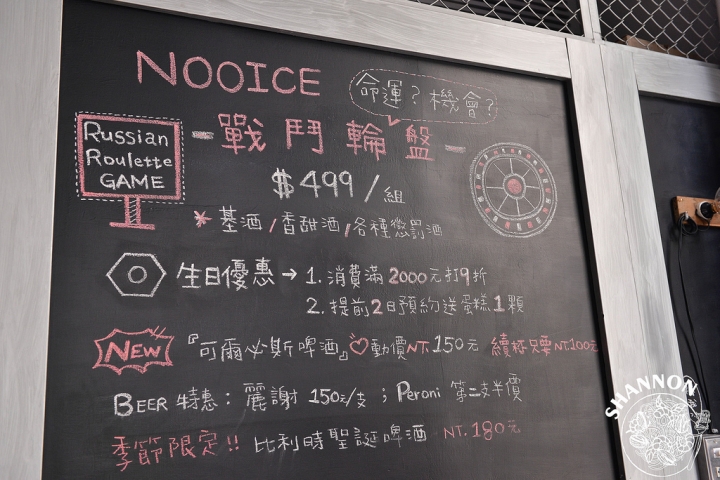 NOOICE
命運？機會？
Russian
Roulette
GAME
-戰鬥輪盤-
$499/組
*基酒/香甜酒/各種懲罰酒
生日優惠→1.消費滿2000元打9折
2.提前2日預約送蛋糕1顆
NEW『可爾必斯啤酒』♡動價NT.150元 續杯只要NT.100元
BEER特惠：麗謝 150元/支；Peroni 第二支半價
季節限定!! 比利時聖誕啤酒 NT.180元
SHANNON